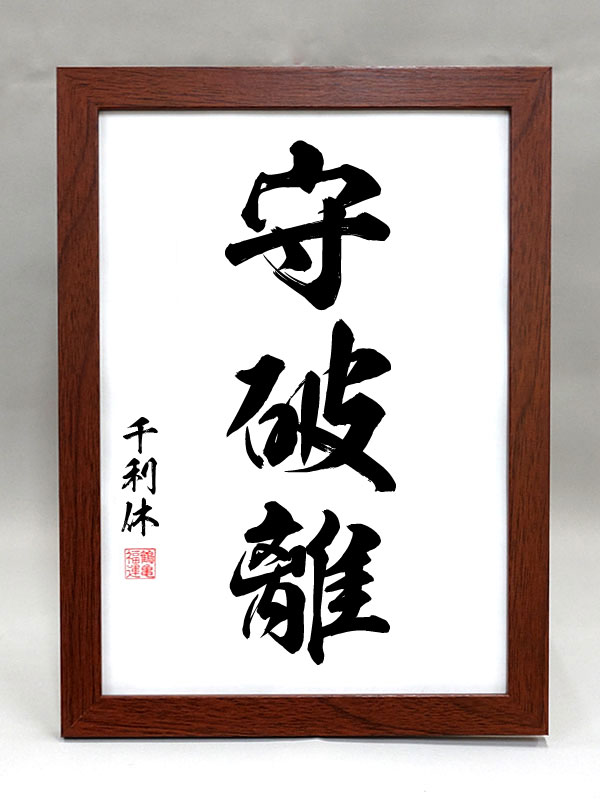 守破離
千利休
鶴亀
福運